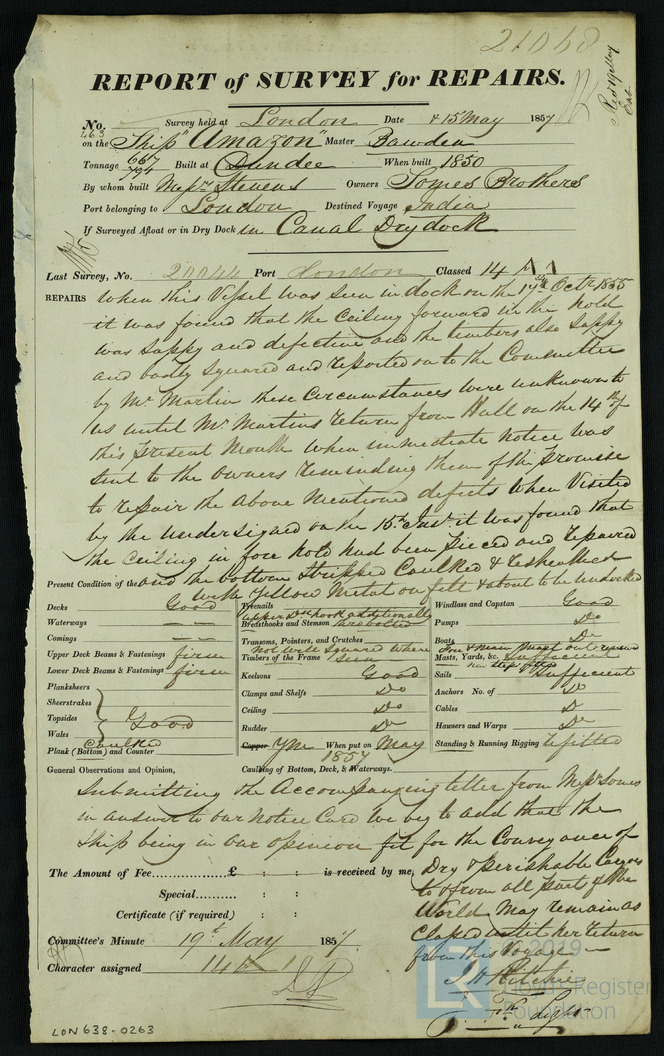 21068
REPORT of SURVEY for REPAIRS.
No. 463 Survey held at London Date & 15 May 1857
on the Ship "Amazon" Master Bawden
Tonnage 667 794 Built at Dundee When built 1850
By whom built Messrs Stevens Owners Somes Brothers
Port belonging to London Destined Voyage India
If Surveyed Afloat or in Dry Dock in Canal Dry dock
Last Survey, No. 20044 Port London Classed 14 A 1
REPAIRS When this Vessel was seen in dock on the 17th Octr 1855
it was found that the Ceiling forward in the hold
was sappy and defective and the timbers also sappy
and badly squared and reported on to the Committee
by Mr Martin these circumstances were unknown to
us until Mr Martins return from Hull on the 14th of
this present Month when immediate notice was
sent to the owners reminding them of the promise
to repair the above mentioned defects When Visited
by the undersigned on the 15th Inst. it was found that
the Ceiling in fore hold had been pieced and repaired
Present Condition of the and the bottom stripped Caulked &
with Yellow Metal on felt & about to be undocked
Decks Good
Waterways " "
Comings " "
Upper Deck Beams & Fastenings firm
Lower Deck Beams & Fastenings firm
Planksheers
Sheerstrakes
Topsides Good
Wales
Plank (Bottom) and Counter Caulked
Treenails
upper Dk hook additionally
Breasthooks and Stemson
Transoms, Pointers, and Crutches
not well squared where
Timbers of the Frame seen
Keelsons Good
Clamps and Shelfs Do
Ceiling Do
Rudder Do
Copper YM When put on May 1857
Caulking of Bottom, Deck, & Waterways.
Windlass and Capstan Good
Pumps Do
Boats Do
Fore & Main Mast out
Masts, Yards, &c. Sufficient
Sails Sufficient
Anchors No. of Do
Cables Do
Hawsers and Warps Do
Standing & Running Rigging refitted
General Observations and Opinion,
Submitting the Accompanying letter from Messrs Somes
in answer to our Notice Card We beg to add that the
Ship being in our opinion fit for the Conveyance of
Dry & perishable Cargoes
to & from all part of the
World May remain as
Classed until her return
from this Voyage
The Amount of Fee £ : : is received by me,
Special : :
Certificate (if required) : :
Committee's Minute 19th May 1857.
Character assigned 14 A 1
J H Ritchie
LON 638-0263
© 2019
LR
Lloyd's Register
Foundation